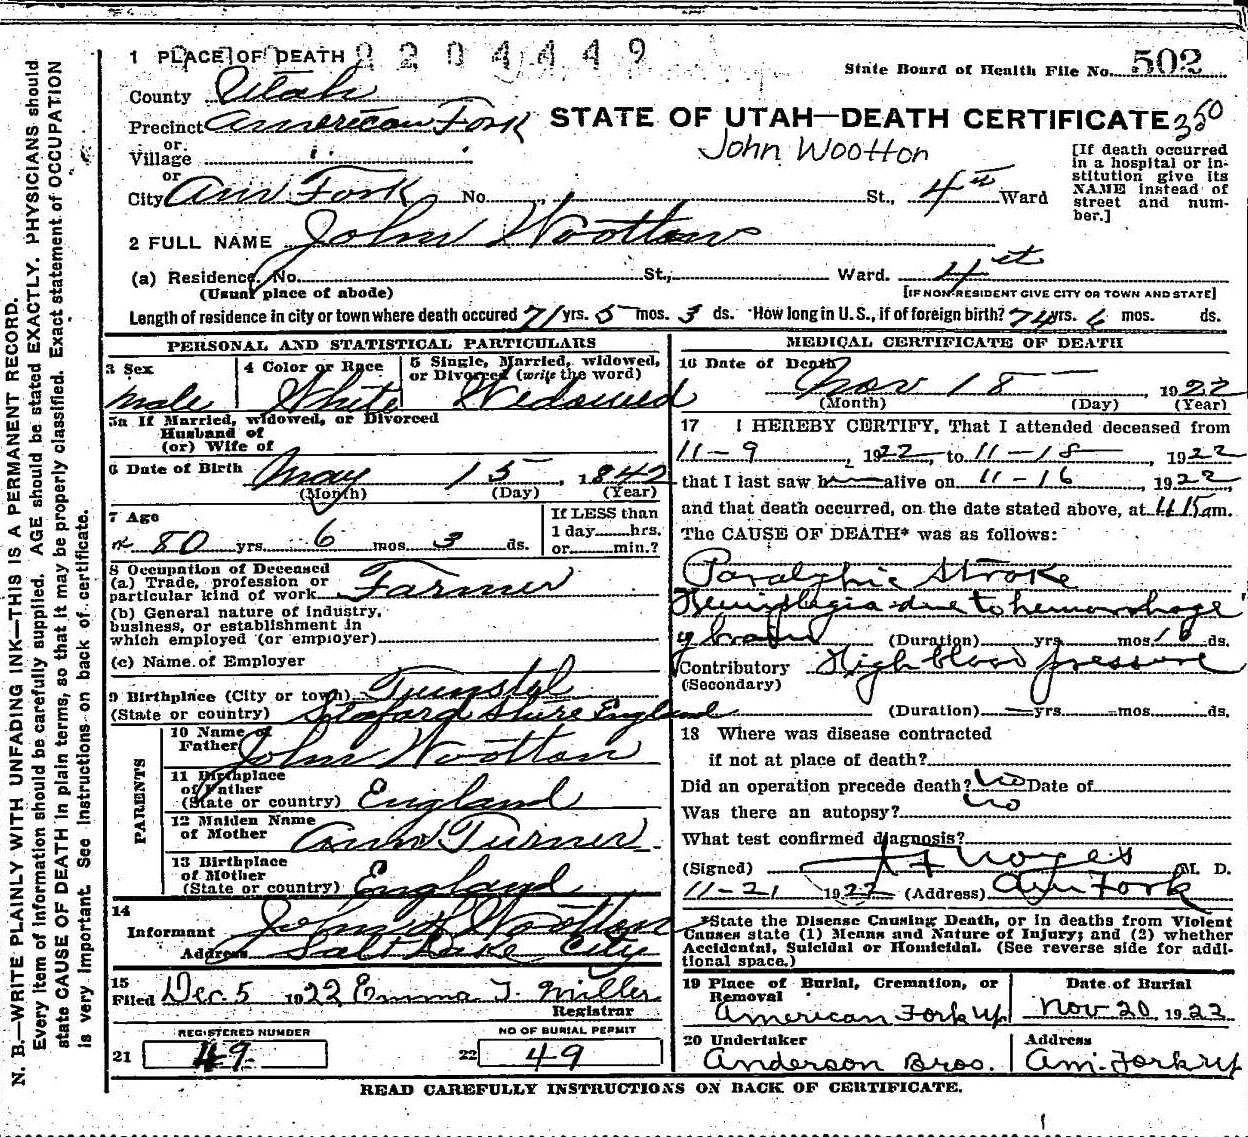 1 PLACE OF DEATH 2204449
State Board of Health File No. 502
County Utah
Precinct American Fork
STATE OF UTAH—DEATH CERTIFICATE 350
or
Village
John Wootton
or
City Am Fork No. St., 4th Ward
[If death occurred in a hospital or institution give its NAME instead of street and number.]
2 FULL NAME John Wootton
(a) Residence. No. St., Ward. 4st
(Usual place of abode) [IF NON-RESIDENT GIVE CITY OR TOWN AND STATE]
Length of residence in city or town where death occured 71 yrs. 5 mos. 3 ds. How long in U.S., if of foreign birth? 74 yrs. 6 mos. ds.
PERSONAL AND STATISTICAL PARTICULARS
3 Sex
Male
4 Color or Race
White
5 Single, Married, widowed, or Divorced (write the word)
Widowed
5a If Married, widowed, or Divorced
Husband of
(or) Wife of
6 Date of Birth May 15, 1842
(Month) (Day) (Year)
7 Age
80 yrs. 6 mos 3 ds.
If LESS than
1 day hrs.
or min.?
8 Occupation of Deceased
(a) Trade, profession or
particular kind of work Farmer
(b) General nature of industry,
business, or establishment in
which employed (or employer)
(c) Name of Employer
9 Birthplace (City or town) Tunstel
(State or country) Stafard Shire England
PARENTS
10 Name of
Father John Wootton
11 Birthplace
of Father
(State or country) England
12 Maiden Name
of Mother Ann Turner
13 Birthplace
of Mother
(State or country) England
14
Informant John Wootton
Address Salt Lake City
15
Filed Dec 5 1922 Emma T. Miller
Registrar
REGISTERED NUMBER
21 49
NO OF BURIAL PERMIT
22 49
MEDICAL CERTIFICATE OF DEATH
16 Date of Death Nov 18 1922
(Month) (Day) (Year)
17 I HEREBY CERTIFY, That I attended deceased from
11-9, 1922, to 11-18, 1922
that I last saw h alive on 11-16, 1922
and that death occurred, on the date stated above, at 4 15 am.
The CAUSE OF DEATH* was as follows:
Paralytic Stroke
Hemiplegia due to hemorrhage
of brain (Duration) yrs. mos. ds.
Contributory High blood pressure
(Secondary)
(Duration) yrs. mos. ds.
18 Where was disease contracted
if not at place of death?
Did an operation precede death? No Date of
Was there an autopsy? no
What test confirmed diagnosis?
(Signed) Noyes M. D.
11-21 1922 (Address) Am Fork
*State the Disease Causing Death, or in deaths from Violent
Causes state (1) Means and Nature of Injury; and (2) whether
Accidental, Suicidal or Homicidal. (See reverse side for additional space.)
19 Place of Burial, Cremation, or
Removal
American Fork
Date of Burial
Nov 20, 1922
20 Undertaker
Anderson Bros.
Address
Am. Fork
READ CAREFULLY INSTRUCTIONS ON BACK OF CERTIFICATE.
N. B.—WRITE PLAINLY WITH UNFADING INK—THIS IS A PERMANENT RECORD.
Every item of information should be carefully supplied. AGE should be stated EXACTLY. PHYSICIANS should
state CAUSE OF DEATH in plain terms, so that it may be properly classified. Exact statement of OCCUPATION
is very important. See instructions on back of certificate.